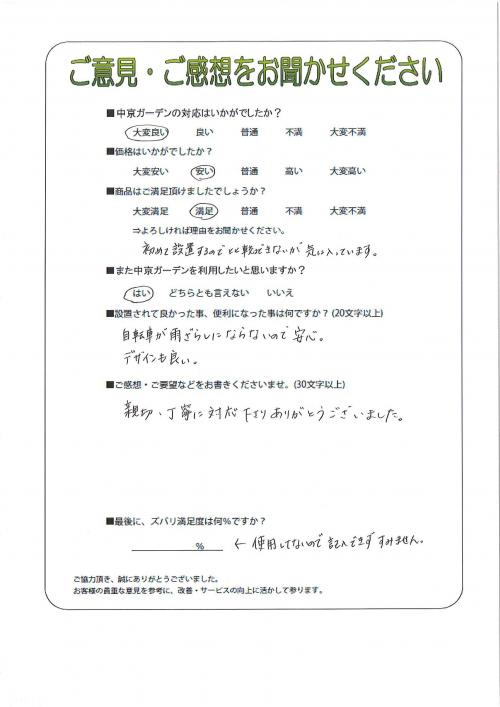 ご意見・ご感想をお聞かせください
■中京ガーデンの対応はいかがでしたか？
大変良い 良い 普通 不満 大変不満
■価格はいかがでしたか？
大変安い 安い 普通 高い 大変高い
■商品はご満足頂けましたでしょうか？
大変満足 満足 普通 不満 大変不満
⇒よろしければ理由をお聞かせください。
初めて設置するので比較できないが気に入っています。
■また中京ガーデンを利用したいと思いますか？
はい どちらとも言えない いいえ
■設置されて良かった事、便利になった事は何ですか？(20文字以上)
自転車が雨ざらしにならないので安心。
デザインも良い。
■ご感想・ご要望などをお書きくださいませ。(30文字以上)
親切、丁寧に対応下さりありがとうございました。
■最後に、ズバリ満足度は何％ですか？
％ ← 使用してないので記入できずすみません。
ご協力頂き、誠にありがとうございました。
お客様の貴重な意見を参考に、改善・サービスの向上に活かして参ります。